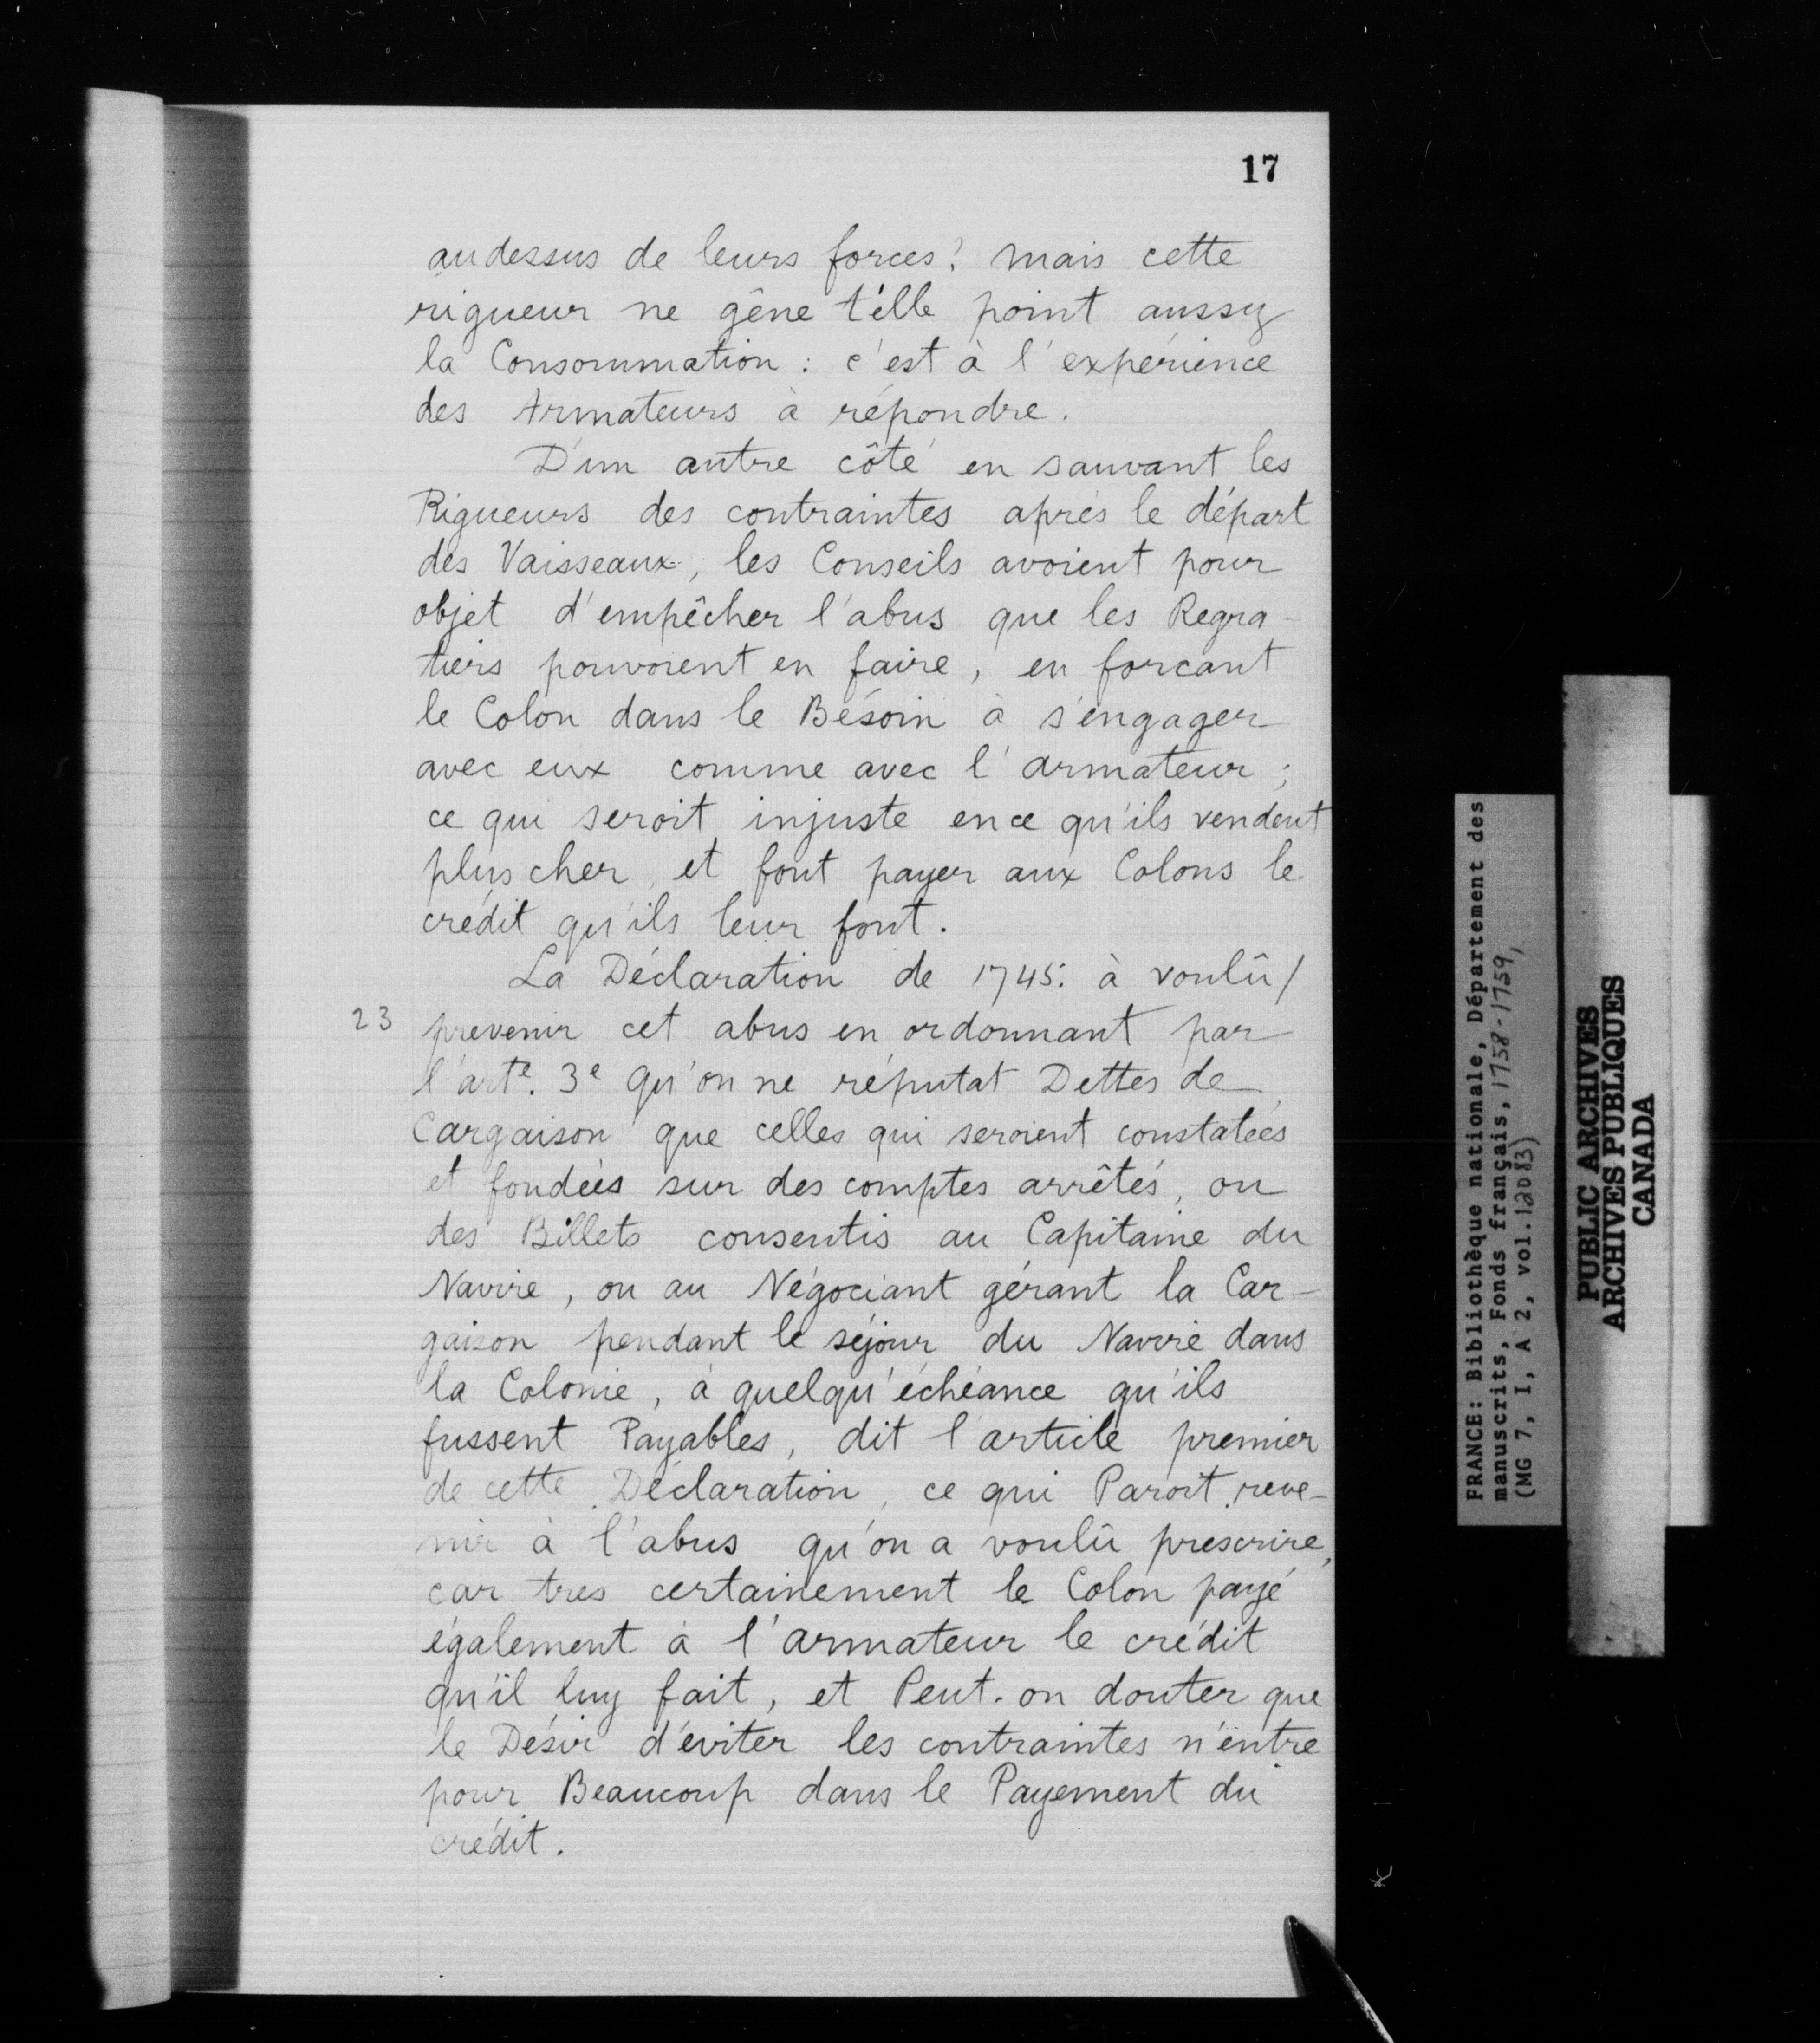 17
audessus de leurs forces? mais cette
rigueur ne gêne t'elle point aussy
la Consommation : c'est à l'expérience
des Armateurs à répondre.
D'un autre côté en sauvant les
Rigueurs des contraintes après le départ
des Vaisseaux, les Conseils avoient pour
objet d'empêcher l'abus que les Regra-
tiers pouvoient en faire, en forcant
le Colon dans le Bésoin à s'engager
avec eux comme avec l'armateur ;
ce qui seroit injuste ence qu'ils vendent
plus cher, et font payer aux Colons le
crédit qu'ils leur font.
La Déclaration de 1745: à voulû/
23 prevenir cet abus en ordonnant par
l'arte. 3e qu'on ne réputat Dettes de
Cargaison que celles qui seroient constatées
et fondées sur des comptes arrêtés, ou
des Billets consentis au Capitaine du
Navire, ou au Négociant gérant la Car-
gaison pendant le séjour du Navire dans
la Colonie, à quelqu'échéance qu'ils
fussent Payables, dit l'article premier
de cette Déclaration, ce qui Paroit reve-
nir à l'abus qu'on a voulû prescrire,
car tres certainement le Colon payé
également à l'armateur le crédit
qu'il luy fait, et Peut-on douter que
le Désir d'éviter les contraintes n'entre
pour Beaucoup dans le Payement du
crédit.
FRANCE: Bibliothèque nationale, Département des
manuscrits, Fonds français, 1758-1759,
(MG 7, I, A 2, vol. 12083)
PUBLIC ARCHIVES
ARCHIVES PUBLIQUES
CANADA